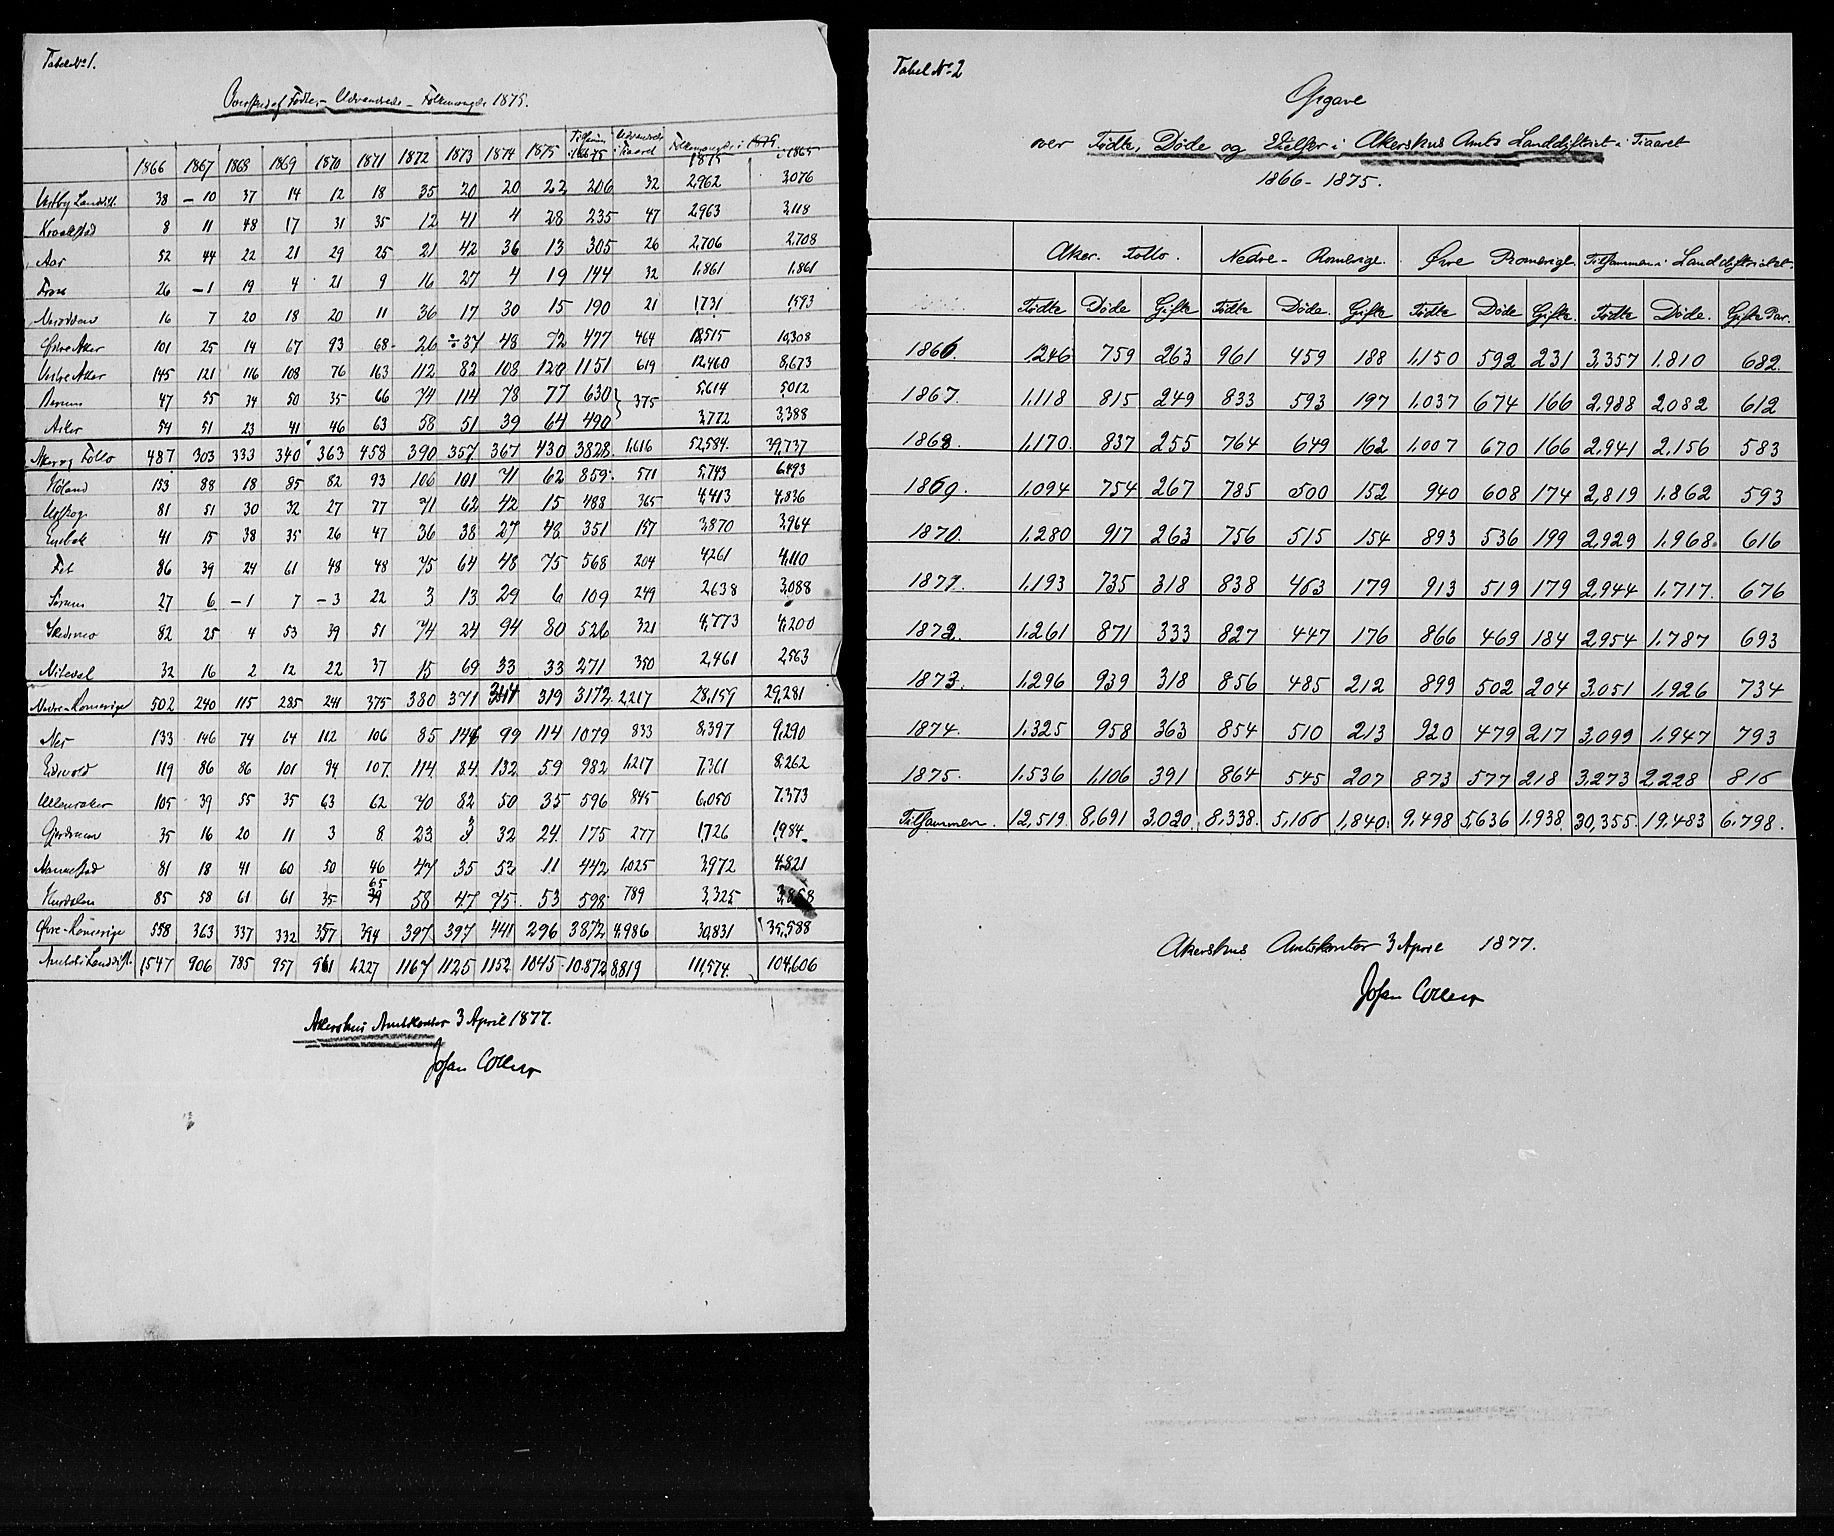 Tabel No 1.
Overskud af Fødte, - Udvandrede - Folkemængde 1875.
1866 1867 1868 1869 1870 1871 1872 1873 1874 1875 Tilsam. 1866-75 Udvandrede i Tiaaret Folkemængde i 1875 i 1865
Vestby Landd. 38 -10 37 14 12 18 35 20 20 22 206 32 2,962 3,076
Kraakstad 8 11 48 17 31 35 12 41 4 28 235 47 2,963 3,118
Aas 52 44 22 21 29 25 21 42 36 13 305 26 2,706 2,708
Frogn 26 -1 19 4 21 9 16 27 4 19 144 32 1,861 1,861
Nesodden 16 7 20 18 20 11 36 17 30 15 190 21 1,731 1,593
Østre Aker 101 25 14 67 93 68 26 ÷37 48 72 477 464 18,515 10,308
Vestre Aker 145 121 116 108 76 163 112 82 108 120 1151 619 12,460 8,673
Berum 47 55 34 50 35 66 74 114 78 77 630 } 375 5,614 5,012
Asker 54 51 23 41 46 63 58 51 39 64 490 3,772 3,388
Aker og Follo 487 303 333 340 363 458 390 357 367 430 3828 1,616 52,584. 39,737
Høland 133 88 18 85 82 93 106 101 71 62 859. 571 5,743 6,493
Urskog 81 51 30 32 27 77 71 62 42 15 488 365 4,413 4,836
Enebak 41 15 38 35 26 47 36 38 27 48 351 157 3,870 3,964
Fet 86 39 24 61 48 48 75 64 48 75 568 204 4,261 4,110
Sørum 27 6 -1 7 -3 22 3 13 29 6 109 249 2638 3,088
Skedsmo 82 25 4 53 39 51 74 24 94 80 526 321 4,773 4,200
Nitedal 32 16 2 12 22 37 15 69 33 33 271 350 2,461 2,563
Nedre-Romerige 502 240 115 285 241 375 380 371 344 319 3172. 2,217 28,159 29,281
Nes 133 146 74 64 112 106 85 146 99 114 1079 833 8,397 9,290
Eidsvold 119 86 86 101 94 107 114 84 132 59 982 1,217 7,361 8,262
Ullensaker 105 39 55 35 63 62 70 82 50 35 596 845 6,050 7,373
Gjerdrum 35 16 20 11 3 8 23 3 32 24 175 277 1,726 1,984
Nannestad 81 18 41 60 50 46 47 35 53 11 442 1,025 3,972 4,821
Hurdalen 85 58 61 61 35 65 58 47 75 53 598 789 3,325 3,858
Øvre-Romerige 558 363 337 332 357 394 397 397 441 296 3872 4,986 30,831 35,588
Amtets Landdist. 1,547 906 785 957 961 1,227 1167 1125 1152 1045 10,872 8,819 111,574. 104,606
Akershus Amtskontor 3 April 1877.
Johan Collett
Tabel No 2
Opgave
over Fødte, Døde og Vielser i Akershus Amts Landdistrict i Tiaaret
1866-1875.
Aker. Follo. Nedre-Romerige. Øvre Romerige. Tilsammen i Landdistrictet.
Fødte Døde Gifte Fødte Døde. Gifte Fødte Døde Gifte. Fødte Døde. Gifte Par.
1866. 1246 759 263 961 459 188 1,150 592 231 3,357 1.810 682.
1867. 1,118 815 249 833 593 197 1.037 674 166 2,988 2,082 612
1868. 1,170. 837 255 764 649 162 1.007 670 166 2,941 2,156 583
1869. 1,094 754 267 785 500 152 940 608 174 2,819 1.862 593
1870. 1,280 917 263 756 515 154 893 536 199 2,929 1.968. 616
1871. 1,193 735 318 838 463 179 913 519 179 2,944 1.717. 676
1872. 1,261 871 333 827 447 176 866 469 184 2,954 1.787 693
1873. 1,296 939 318 856 485 212 899 502 204 3,051 1,926 734
1874. 1.325 958 363 854 510 213 920 479 217 3,099 1.947 793
1875. 1,536 1,106 391 864 545 207 873 577 218 3,273 2,228 816
Tilsammen. 12,519. 8,691 3,020. 8,338. 5,166 1,840. 9,498 5,636 1,938. 30,355. 19,483 6,798.
Akershus Amtskontor 3 April 1877.
Johan Collett